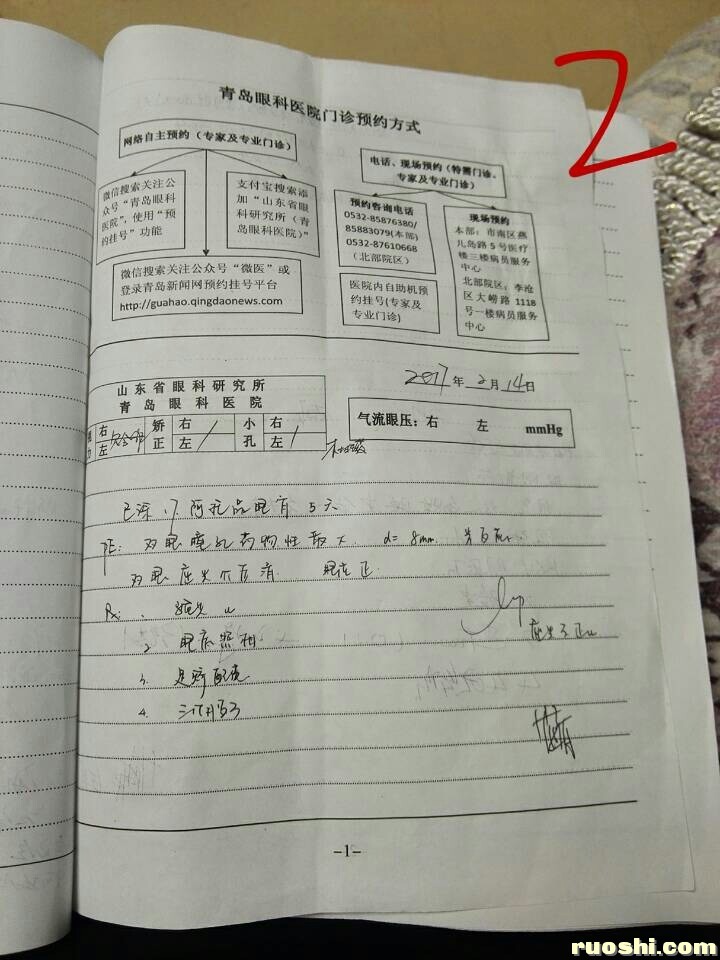 2
青岛眼科医院门诊预约方式
网络自主预约（专家及专业门诊）
微信搜索关注公
众号“青岛眼科
医院”，使用“预
约挂号”功能
支付宝搜索添
加“山东省眼
科研究所（青
岛眼科医院）”
微信搜索关注公众号“微医”或
登录青岛新闻网预约挂号平台
http://guahao.qingdaonews.com
电话、现场预约（特需门诊、
专家及专业门诊）
预约咨询电话
0532-85876380/
85883079(本部)
0532-87610668
（北部院区）
医院内自助机预
约挂号(专家及
专业门诊)
现场预约
本部：市南区燕
儿岛路5号医疗
楼三楼病员服务
中心
北部院区：李沧
区大崂路1118
号一楼病员服务
中心
2017年2月14日
山东省眼科研究所
青岛眼科医院
视力 右 左 矫正 右 左 小孔 右 左
气流眼压：右 左 mmHg
已涂 阿托品眼膏 5天
PE: 双眼瞳孔药物性散大 d=8mm
双眼 眼底正
Rx:
2 眼底照相
3.
4. 三个月
-1-
ruoshi.com